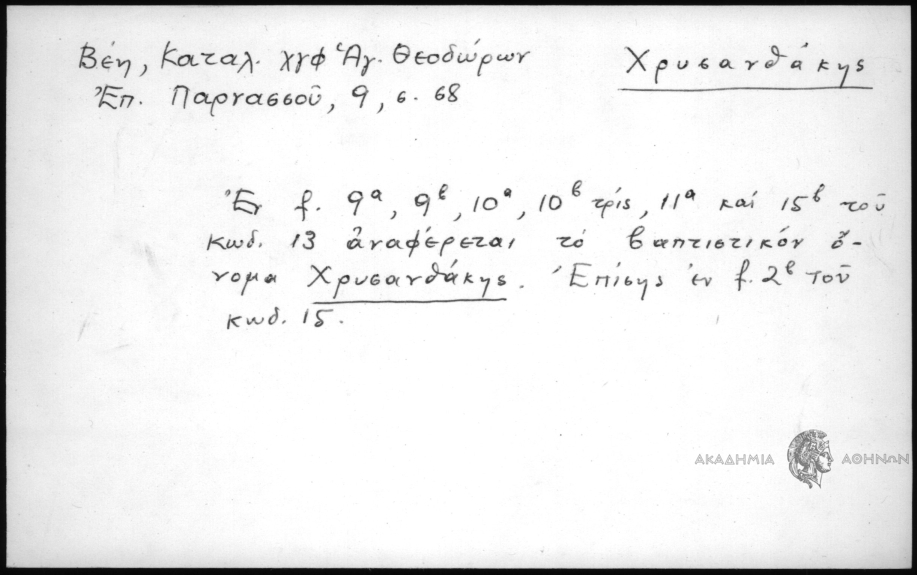 Βέη, Καταλ. χγφ Ἁγ. Θεοδώρων
Χρυσανθάκης
Ἐπ. Παρνασσοῦ, 9, σ. 68
Ἐν f. 9ᵃ, 9ᵇ, 10ᵃ, 10ᵇ τρίς, 11ᵃ καί 15ᵇ τοῦ
κωδ. 13 ἀναφέρεται τό βαπτιστικόν ὄ-
νομα Χρυσανθάκης. Ἐπίσης ἐν f. 2ᵇ τοῦ
κωδ. 15.
ΑΚΑΔΗΜΙΑ ΑΘΗΝΩΝ